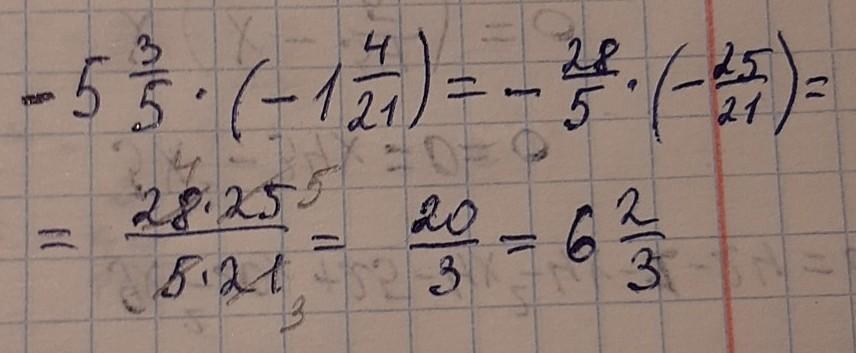 -5 3/5 · (-1 4/21) = - 28/5 · (- 25/21) =
= 28·25/5·21 = 20/3 = 6 2/3